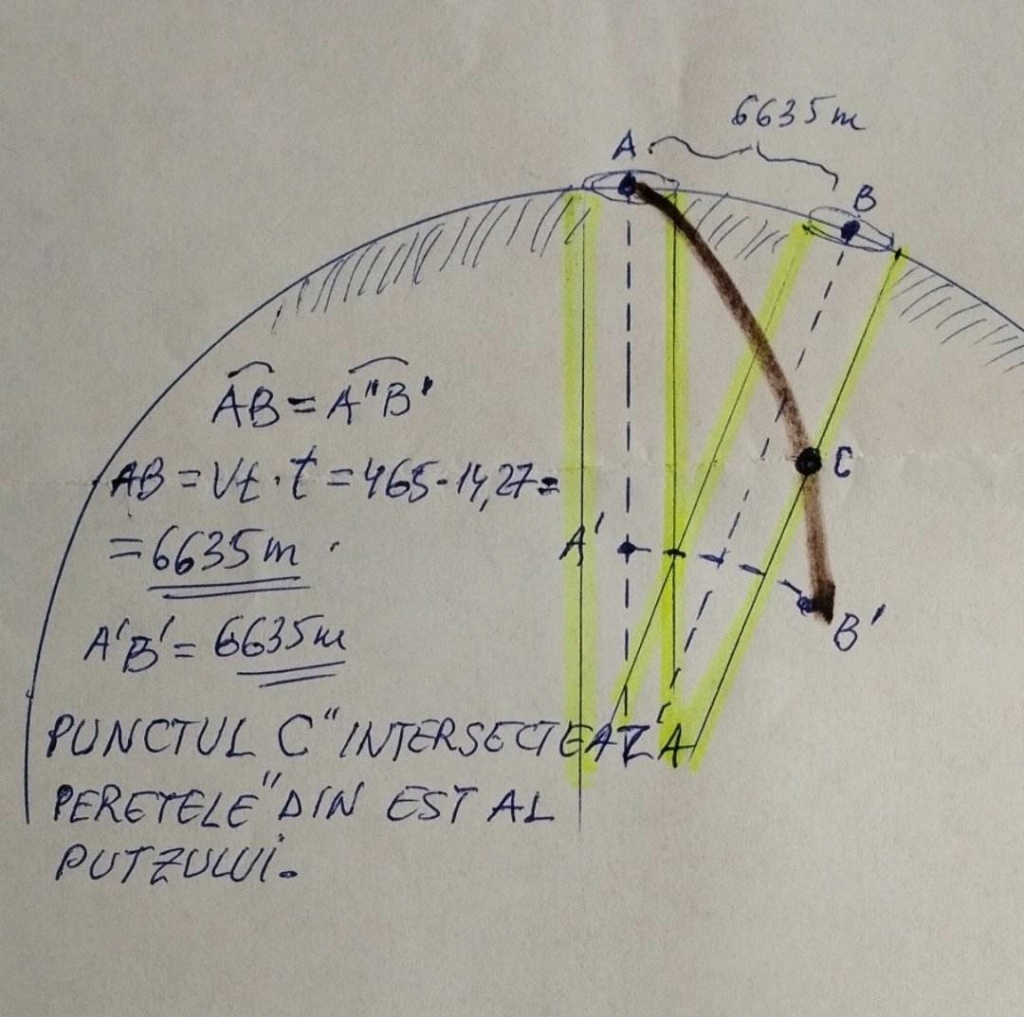 6635m
A
B
AB = A"B'
AB = Vt · t = 465 - 14,27 =
= 6635m .
A'B' = 6635m
C
A'
B'
PUNCTUL C "INTERSECTEAZĂ
PERETELE" DIN EST AL
PUTZULUI.